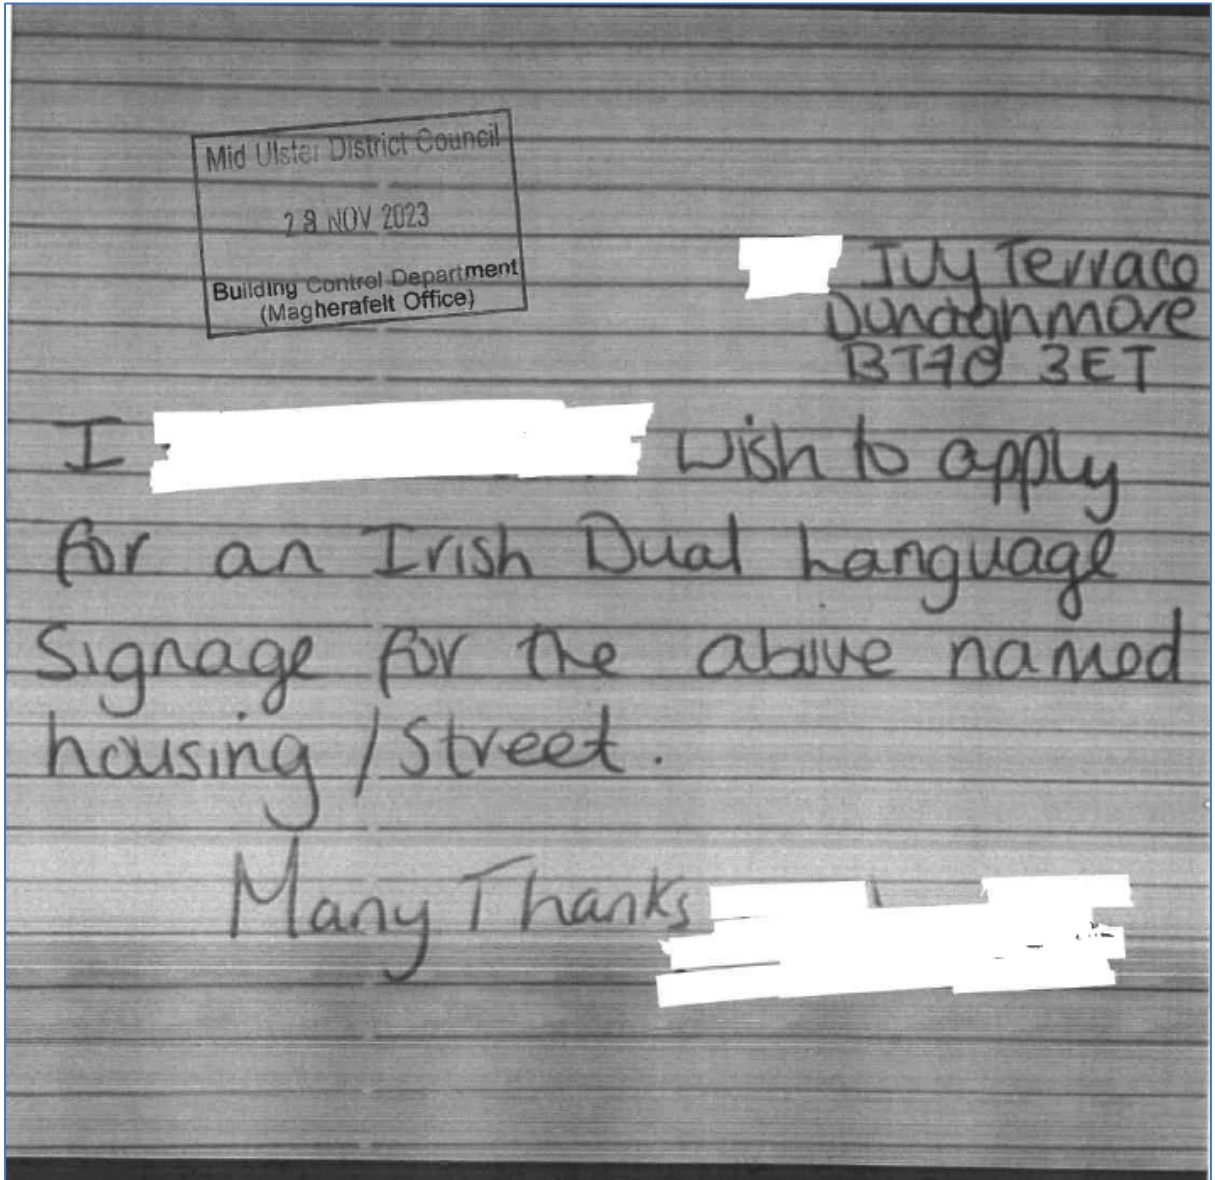 Mid Ulster District Council
28 NOV 2023
Building Control Department
(Magherafelt Office)
Ivy Terrace
Dunaghmore
BT70 3ET
I wish to apply
for an Irish Dual Language
Signage for the above named
housing / Street.
Many Thanks